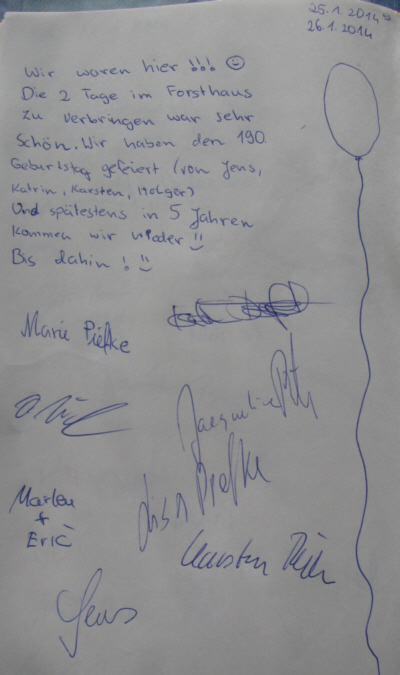 25.1.2014 -
26.1.2014
Wir waren hier !!! ☺
Die 2 Tage im Forsthaus
zu verbringen war sehr
Schön. Wir haben den 190.
Geburtstag gefeiert (von Jens,
Katrin, Karsten, Holger)
Und spätestens in 5 Jahren
kommen wir wieder !!
Bis dahin ! !!
Marie Piefke
Jacqueline
Lisa Piefke
Marlen
+
Eric
Karsten
Jens